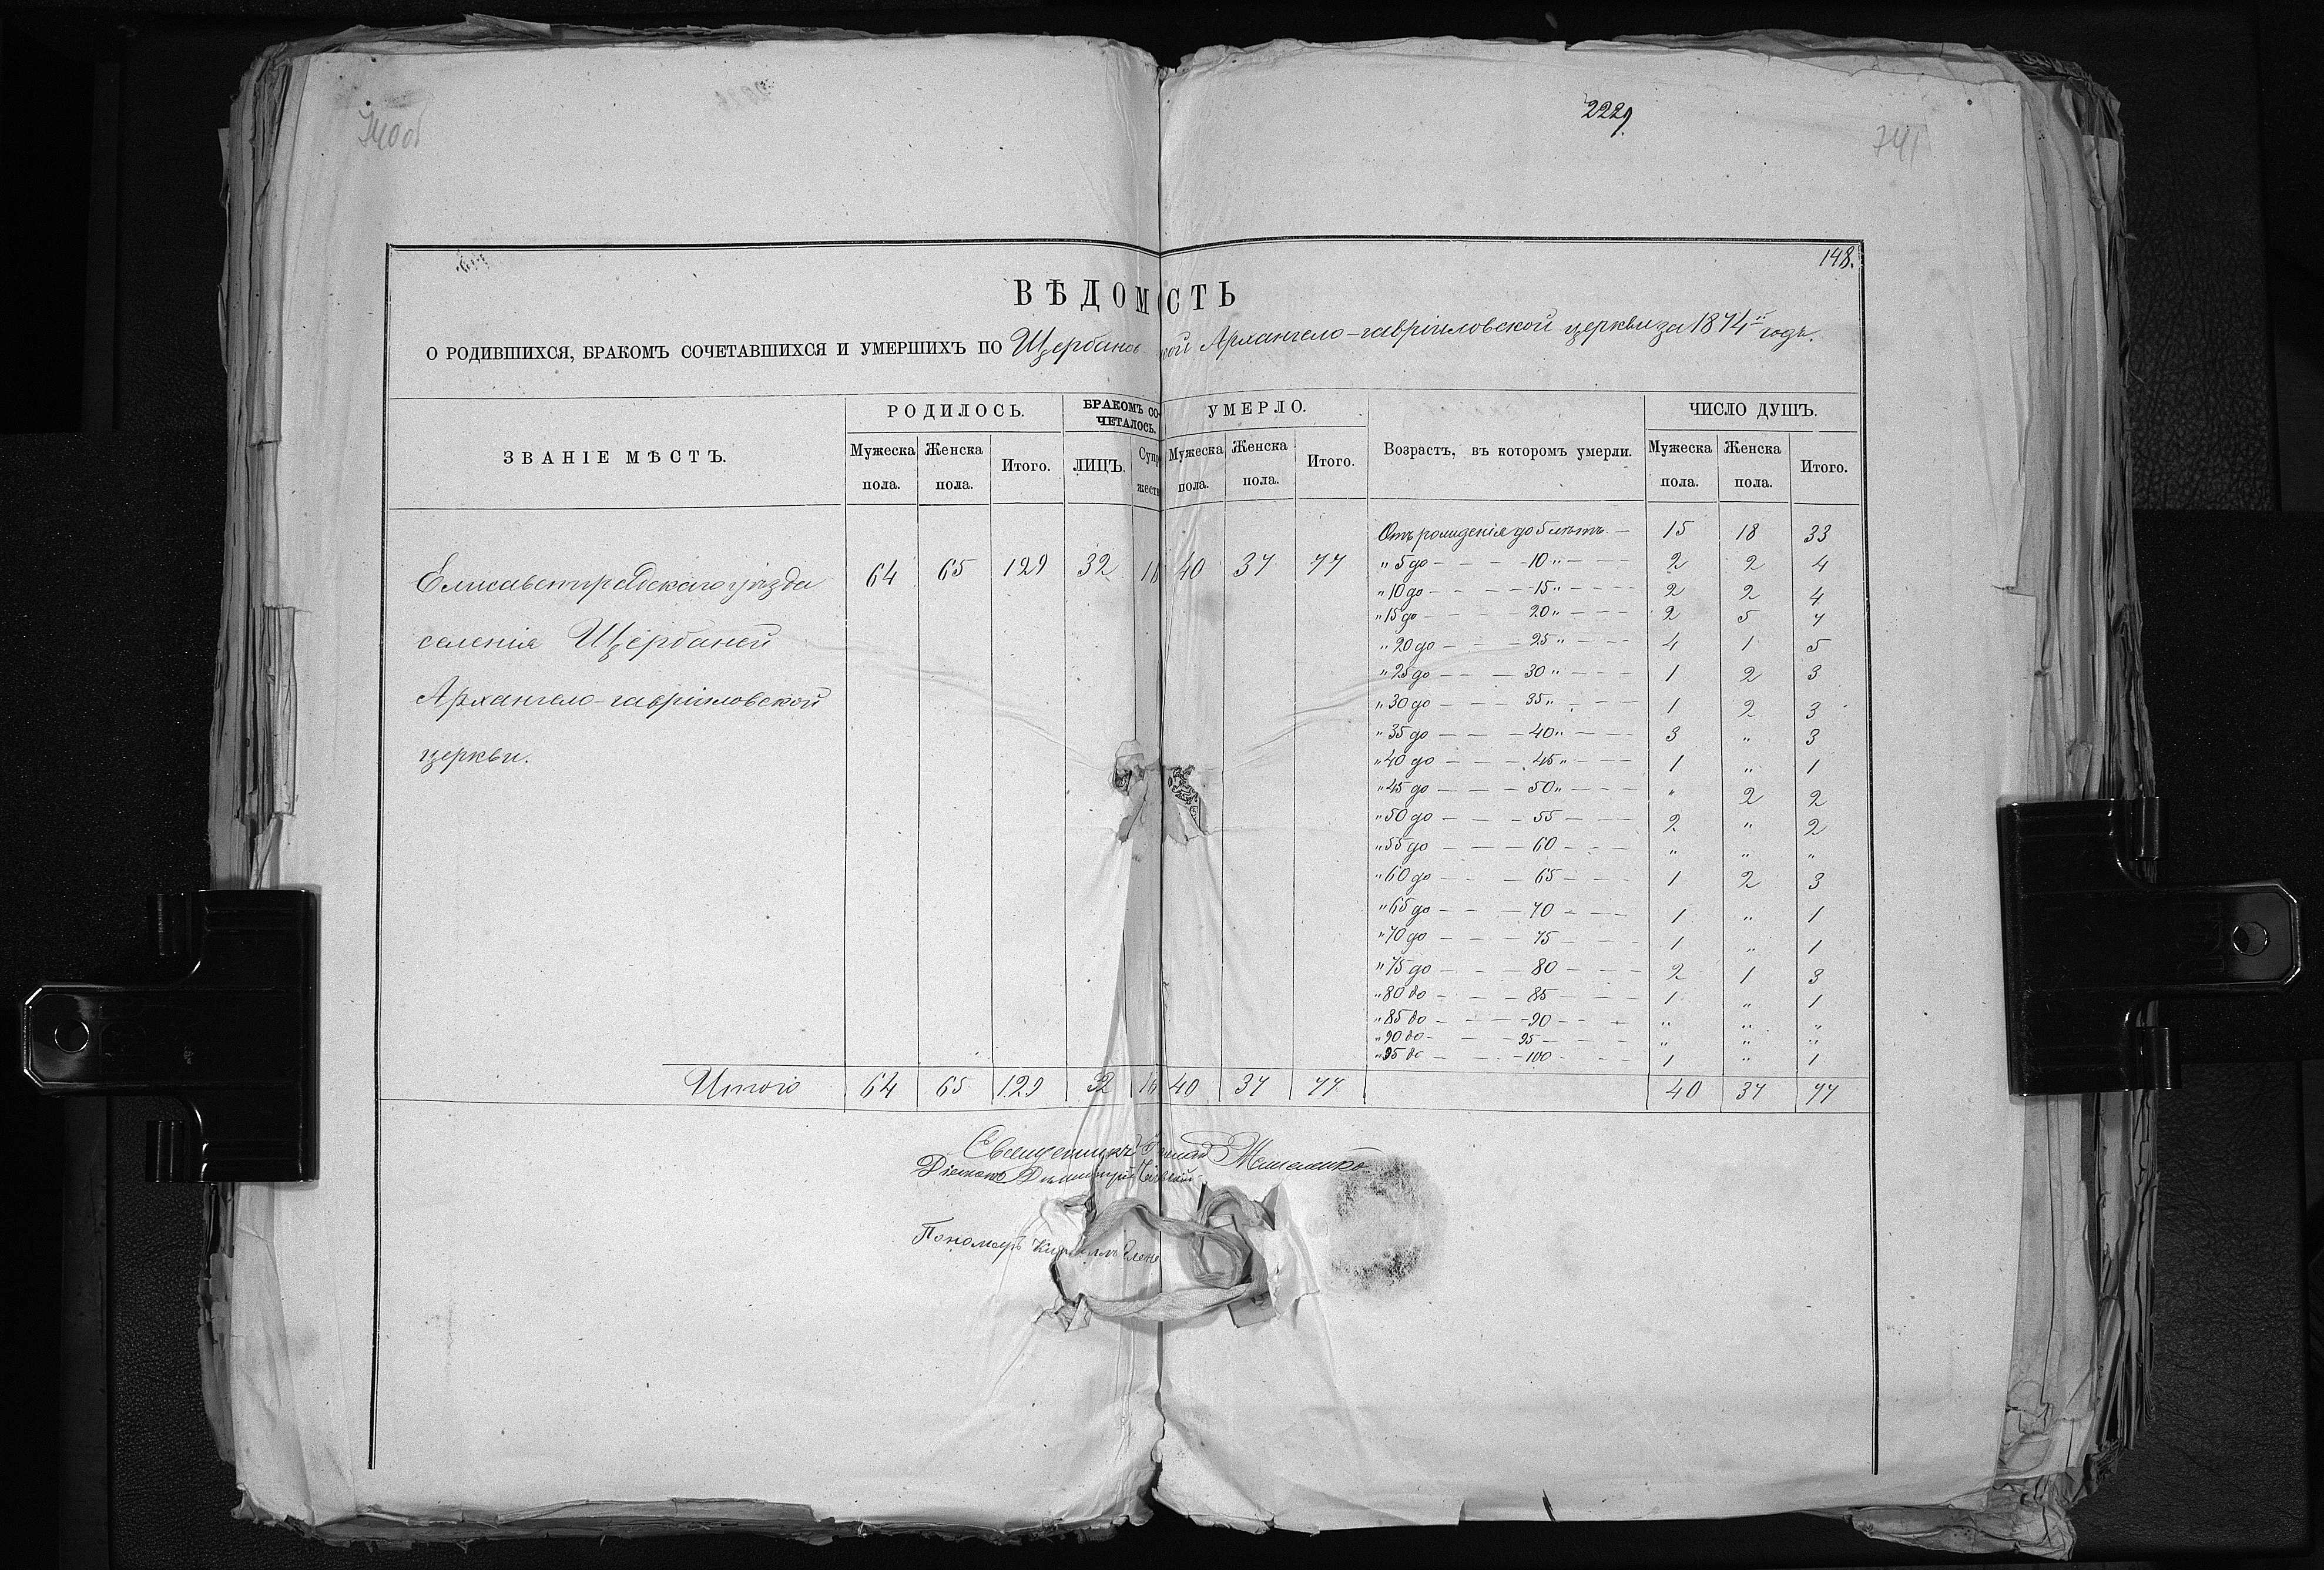 740об
2229.
741
148.
ВѢДОМОСТЬ
О РОДИВШИХСЯ, БРАКОМЪ СОЧЕТАВШИХСЯ И УМЕРШИХЪ ПО Щербановской Архангело-гавріиловской церкви за 1874й годъ.
ЗВАНІЕ МѢСТЪ. РОДИЛОСЬ. БРАКОМЪ СО- ЧЕТАЛОСЬ. УМЕРЛО. Возрастъ, въ которомъ умерли. ЧИСЛО ДУШЪ.
Мужеска пола. Женска пола. Итого. ЛИЦЪ. Супружествъ Мужеска пола. Женска пола. Итого. Мужеска пола. Женска пола. Итого.
Елисаветградскаго уѣзда 64 65 129 32 16 40 37 77
селенія Щербаней
Архангело-гавріиловской
церкви.
Отъ рожденія до 5 лѣтъ — 15 18 33
" 5 до — — — 10 " — — — 2 2 4
" 10 до — — — 15 " — — — 2 2 4
" 15 до — — — 20 " — — — 2 5 7
" 20 до — — — 25 " — — — 4 1 5
" 25 до — — — 30 " — — — 1 2 3
" 30 до — — — 35 " — — — 1 2 3
" 35 до — — — 40 " — — — 3 " 3
" 40 до — — — 45 " — — — 1 " 1
" 45 до — — — 50 " — — — " 2 2
" 50 до — — — 55 — — — 2 " 2
" 55 до — — — 60 — — — " " "
" 60 до — — — 65 — — — 1 2 3
" 65 до — — — 70 — — — 1 " 1
" 70 до — — — 75 — — — 1 " 1
" 75 до — — — 80 — — — 2 1 3
" 80 до — — — 85 — — — 1 " 1
" 85 до — — — 90 — — — " " "
" 90 до — — — 95 — — — " " "
" 95 до — — — 100 — — — 1 " 1
Итого 64 65 129 32 16 40 37 77 40 37 77
Священникъ
Діаконъ Димитрій
Пономарь Кириллъ